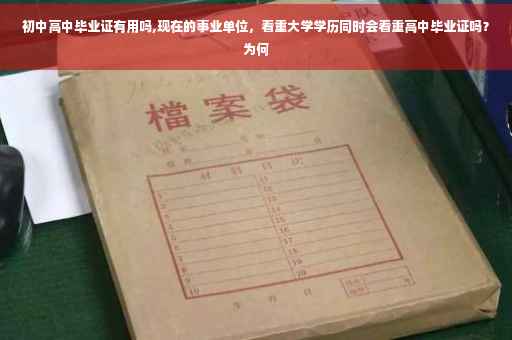 初中高中毕业证有用吗,现在的事业单位，看重大学学历同时会看重高中毕业证吗？
为何
檔案袋
材料目次
1 11
2 12
3 13
4 14
5 15
6 16
7 17
8 18
9 19
10 20
年 月 日